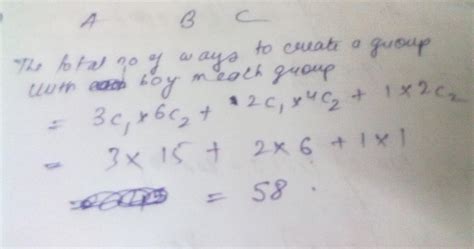 A B C
The total no of ways to create a group
with boy in each group
= 3C₁ × 6C₂ + 2C₁ × 4C₂ + 1 × 2C₂
= 3 × 15 + 2 × 6 + 1 × 1
= 58.